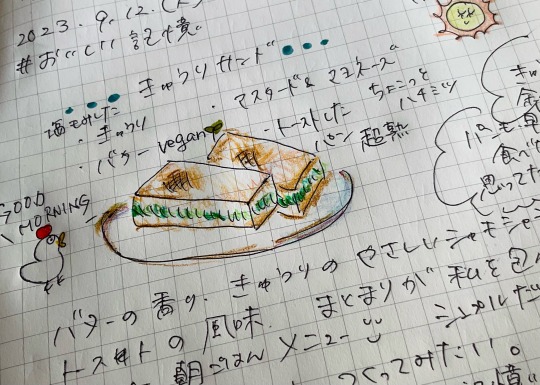 2023. 9. 12. (火)
#おいしい記憶
きゅうりサンド
塩もみした
・きゅうり
・バター vegan
・マスタード&マヨネーズ
ちょこっと
ハチミツ
・トーストした
パン 超熟
GOOD
MORNING
パンも
食べ
思ってた
バターの香り、きゅうりのやさしいシャキシャ
トーストの風味. まとまりが私を包
朝ごはんメニュー
つくってみたい。